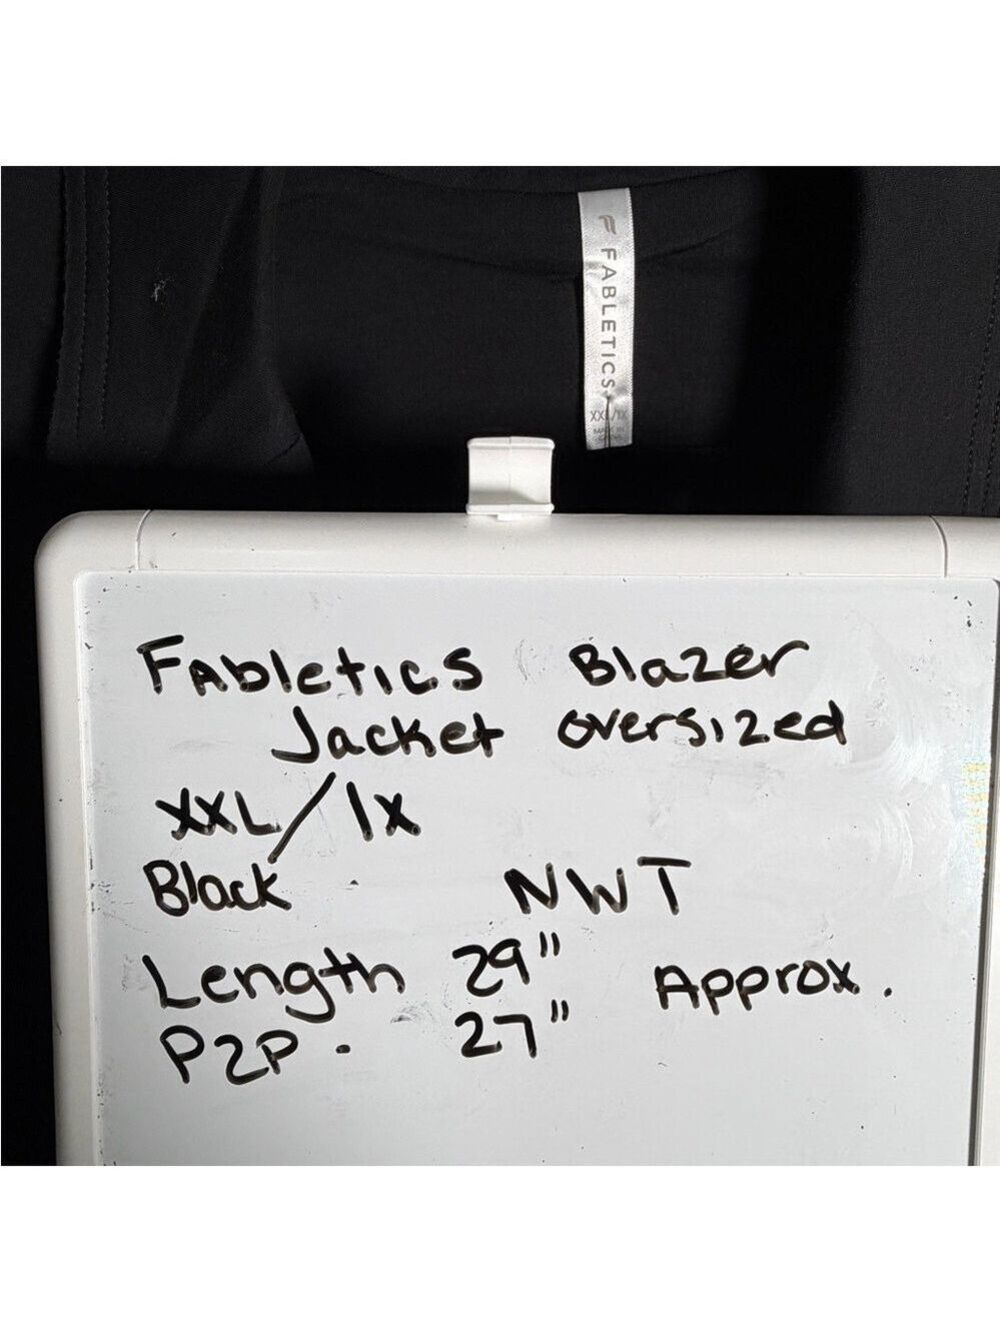 FABLETICS
XXL/1X
Fabletics Blazer
Jacket oversized
XXL/1X
Black NWT
Length 29" Approx.
P2P. 27"